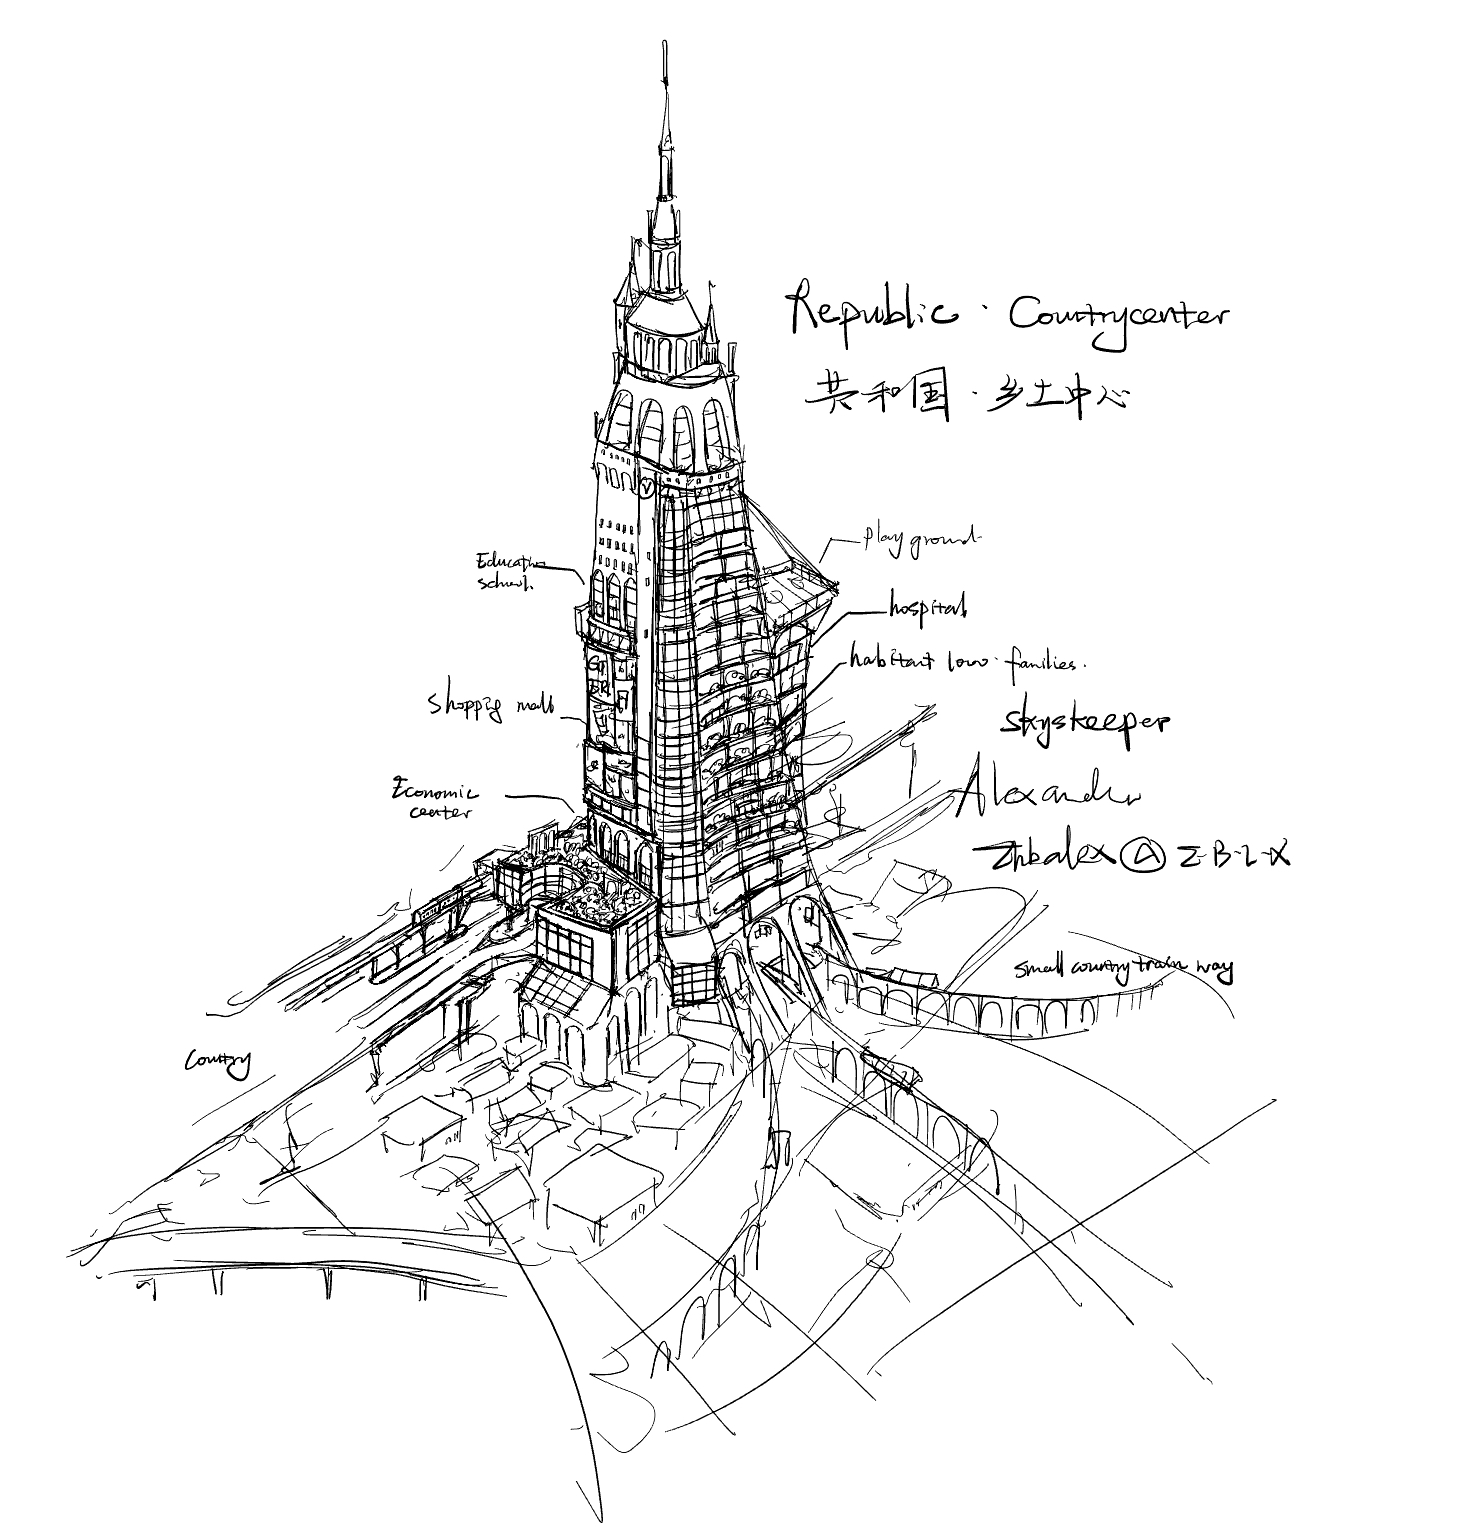 Republic · Countrycenter
共和国·乡土中心
play ground
Education
school.
hospital
habitant low · families.
shopping mall
skyskeeper
Economic
center
Alexander
Zhbalex Ⓐ Z-B-L-X
small country train way
Country
V